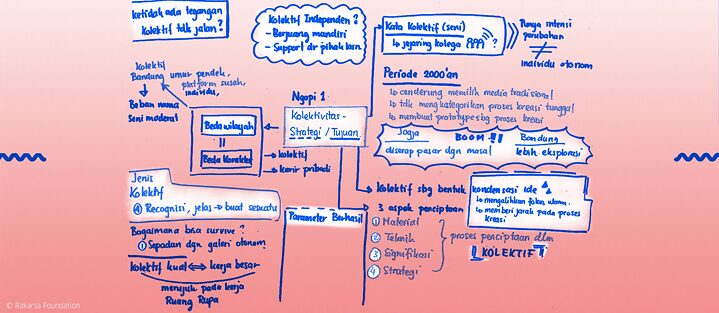 ketidak ada tegangan
kolektif tdk jalan?
Kolektif Independen?
- Berjuang mandiri
- Support dr pihak lain.
Kata Kolektif (seni)
↳ jejaring kolega ?
Punya intensi
perubahan
≠
individu otonom
Periode 2000'an
↳ cenderung memilih media tradisional
↳ tdk mengkategorikan proses kreasi tunggal
↳ membuat prototype sbg proses kreasi
Jogja
diserap pasar dgn masal
BOOM !!!
Bandung
lebih eksplorasi
Kolektif
Bandung umur pendek,
platform susah,
individu,
Beban nama
seni modern
Ngopi 1
Kolektivitas -
Strategi / Tujuan.
Beda wilayah
=
Beda Karakter
kolektif
karir pribadi
Jenis
Kolektif
④ Recognisi, jelas → buat sesuatu
Bagaimana bisa survive?
① Sepadan dgn galeri otonom
Kolektif kuat ⟺ kerja besar
merujuk pada kerja
Ruang Rupa
Parameter Berhasil
Kolektif sbg bentuk
kondensasi ide
↳ mengalihkan fokus utama.
↳ memberi jarak pada proses
kreasi
3 aspek penciptaan
① Material
② Teknik
③ Signifikasi
④ Strategi
proses penciptaan dlm
!! KOLEKTIF !!
© Rakarsa Foundation